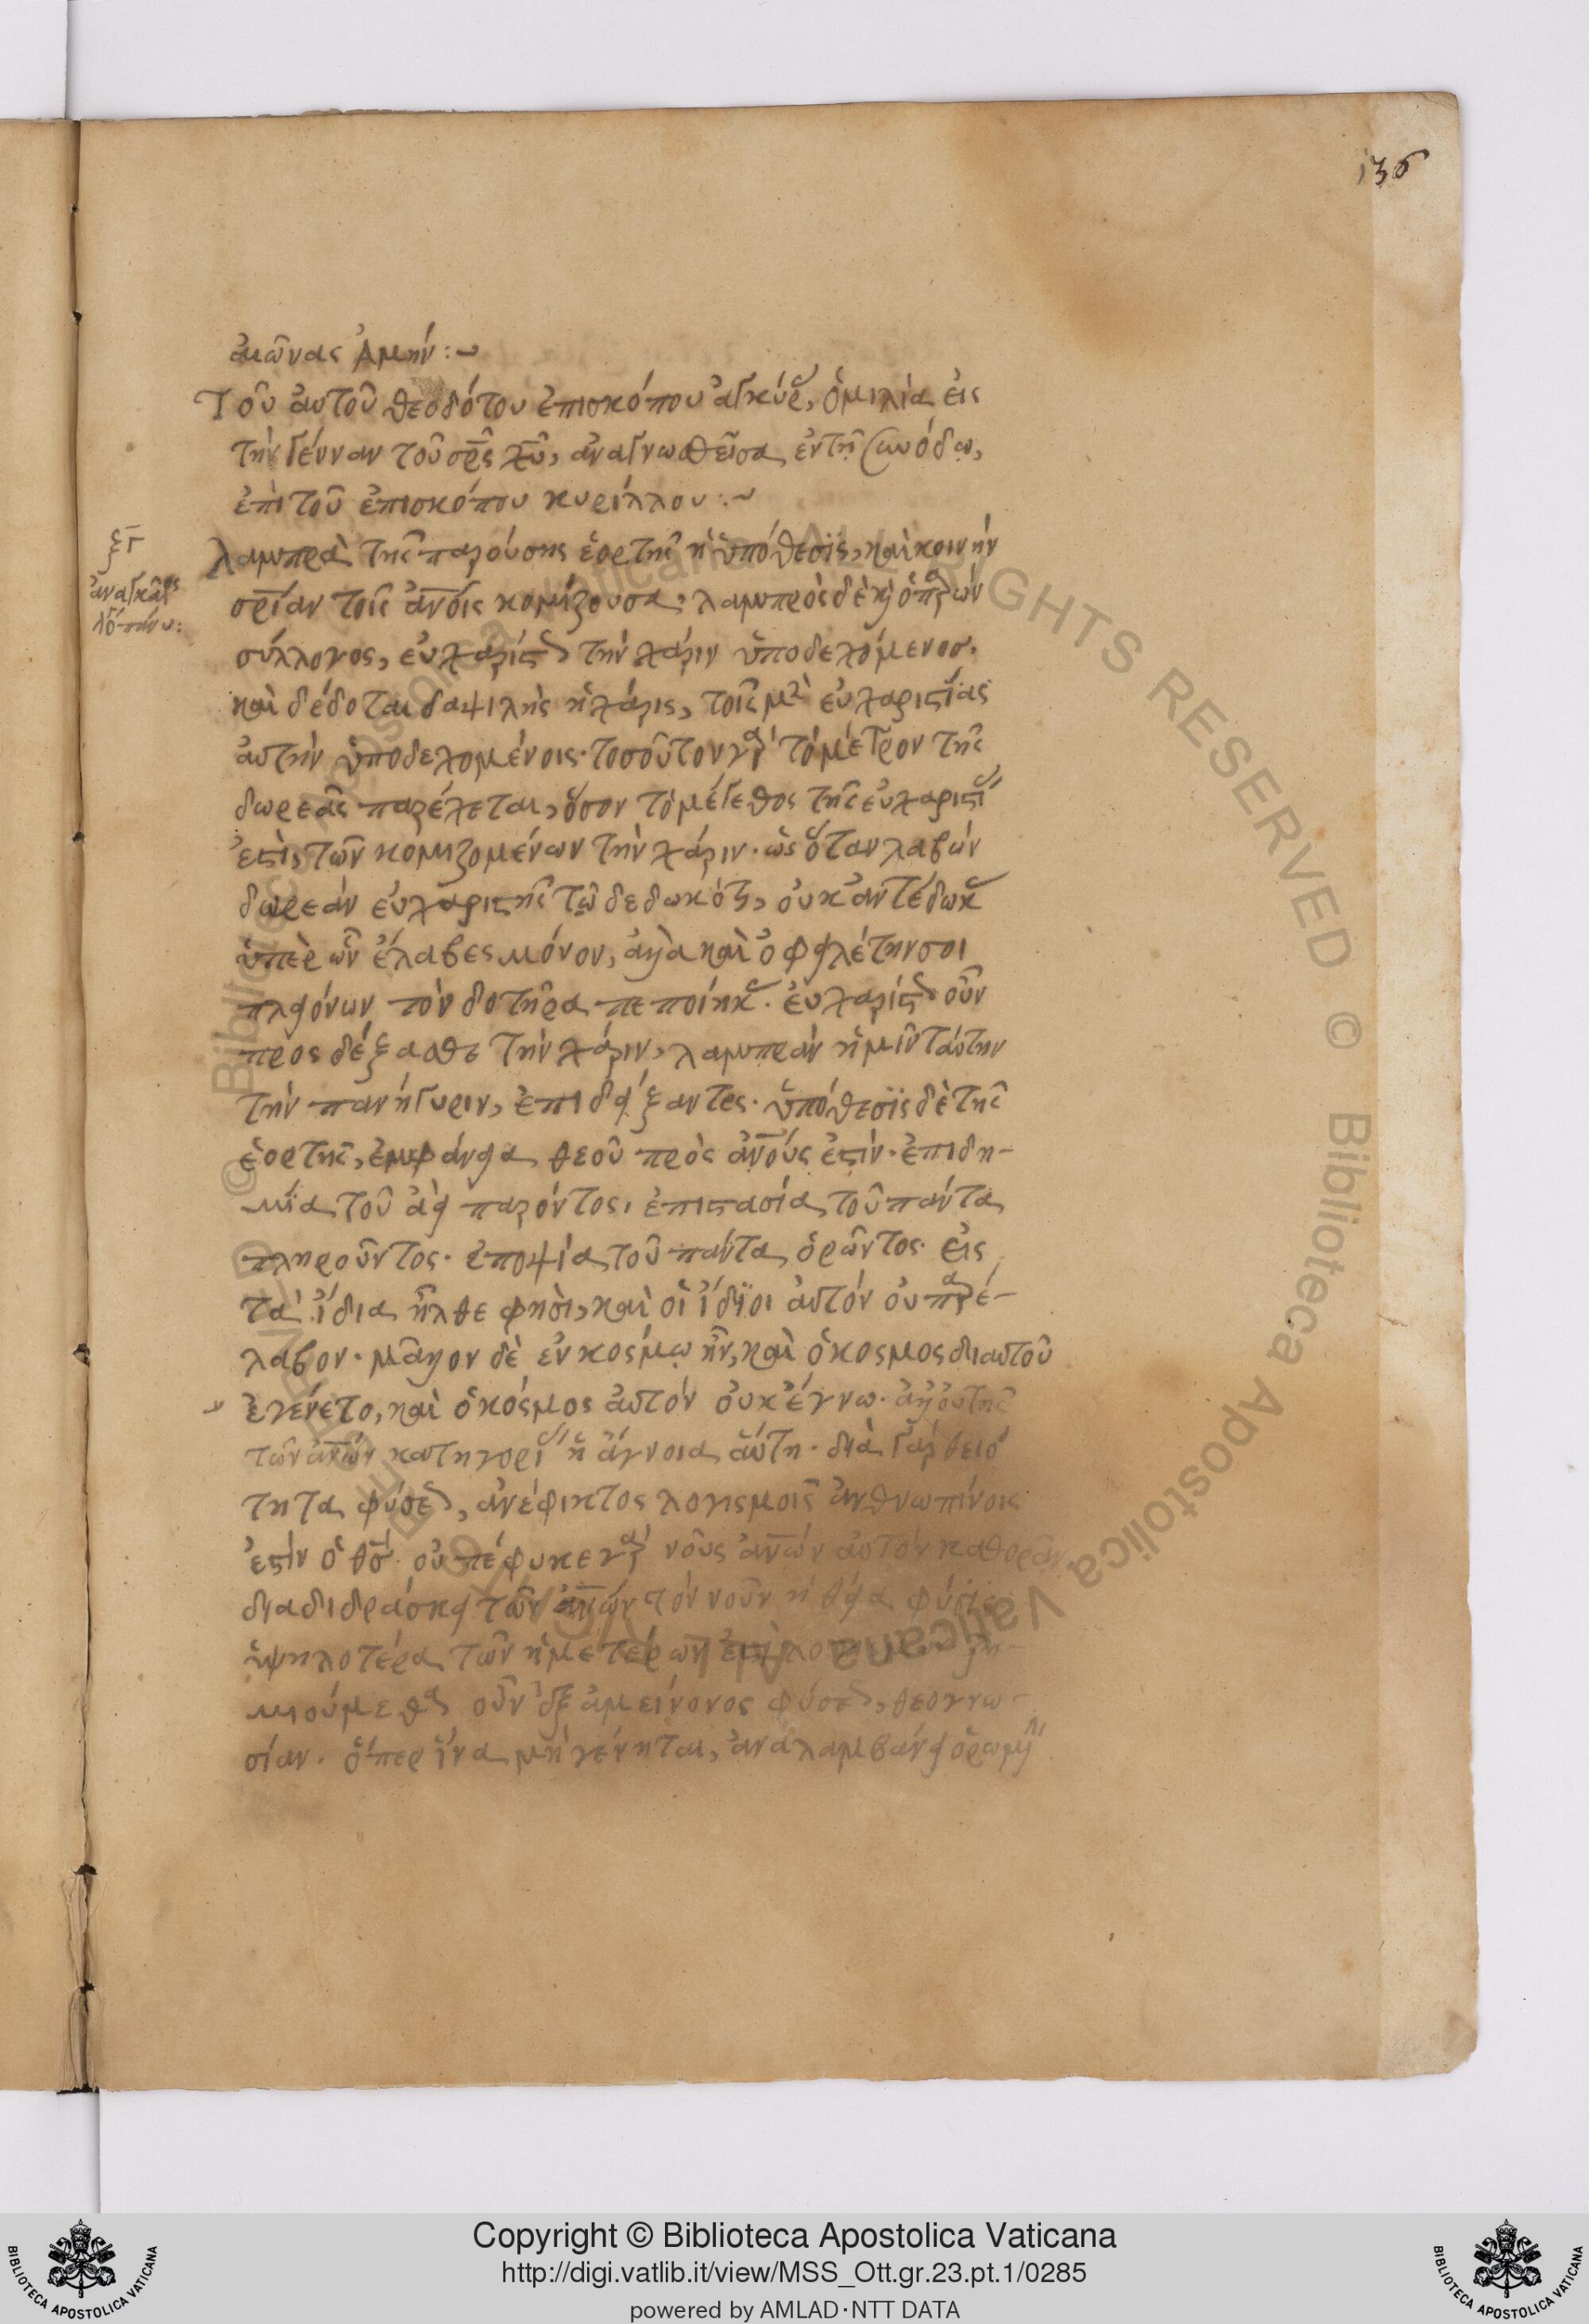 136
αἰῶνας ἀμήν:~
Τοῦ αὐτοῦ θεοδότου ἐπισκόπου ἀγκύρ, ὁμιλία εἰς
τὴν γένναν τοῦ σρ̅ς χυ̅, ἀναγνωθεῖσα ἐν τῇ συνόδῳ,
ἐπὶ τοῦ ἐπισκόπου κυρίλλου:~
ξγ
λαμπρὰ τῆς παρούσης ἑορτῆς ἡ ὑπόθεσϊς, καὶ κοινὴν
σρ̅ίαν τοῖς ἀν̅οις κομίζουσα· λαμπρὸς δὲ κ ὁ παρὼν
σύλλογος, εὐχαρίστως τὴν χάριν ὑποδεχόμενοσ.
καὶ δέδοται δαψιλὴς ἡ χάρις, τοῖς μετ εὐχαριστίας
αὐτὴν ὑποδεχομένοις· τοσοῦτον γὰρ τὸ μέτρον τῆς
δωρεᾶς παρέχεται, ὅσον τὸ μέγεθος τῆς εὐχαριστίας
ἐστὶ τῶν κομιζομένων τὴν χάριν· ὡς ὅταν λαβὼν
δωρεὰν εὐχαριστῇς τῷ δεδωκότι, οὐκ ἀντέδωκας
ὑπὲρ ὧν ἔλαβες μόνον, ἀλλὰ καὶ ὀφειλέτην σοι
πλειόνων τὸν δοτῆρα πεποίηκας· εὐχαρίστως οὖν
προσδέξασθε τὴν χάριν, λαμπρὰν ἡμῖν ταύτην
τὴν πανήγυριν, ἐπιδείξαντες· ὑπόθεσϊς δὲ τῆς
ἑορτῆς, ἐμφάνεια θεοῦ πρὸς ἀν̅ούς ἐστίν· ἐπιδη-
μία τοῦ ἀεὶ παρόντος, ἐπιστασία τοῦ πάντα
πληροῦντος· ἐποψία τοῦ πάντα ὁρῶντος· εἰς
τὰ ἴδια ἦλθε φησὶ, καὶ οἱ ἴδϊοι αὐτὸν οὐ παρέ-
λαβον· μᾶλλον δὲ ἐν κόσμῳ ἦν, καὶ ὁ κοσμος δι αὐτοῦ
ἐγένετο, καὶ ὁ κόσμος αὐτὸν οὐκ ἔγνω· ἀλλ οὐ τῆς
τῶν ἀν̅ων κατηγορίας ἡ ἄγνοια αὕτη· διὰ γὰρ θειό
τητα φύσεως, ἀνέφικτος λογισμοῖς ἀνθρωπίνοις
ἐστὶν ὁ θσ̅· οὐ πέφυκε γὰρ νοῦς ἀν̅ων αὐτὸν καθορᾶν
διαδιδράσκει τῶν ἀν̅ων τὸν νοῦν ἡ θεία φύσις
ὑψηλοτέρα τῶν ἡμετέρων ζη-
μιούμεθα οὖν ἐξ ἀμείνονος φύσεως, θεογνω-
σίαν· ὅπερ ἵνα μὴ γένηται, ἀναλαμβάνει